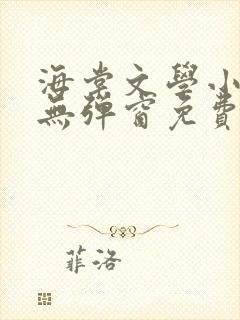 海棠文學小
無彈窗免費
菲洛